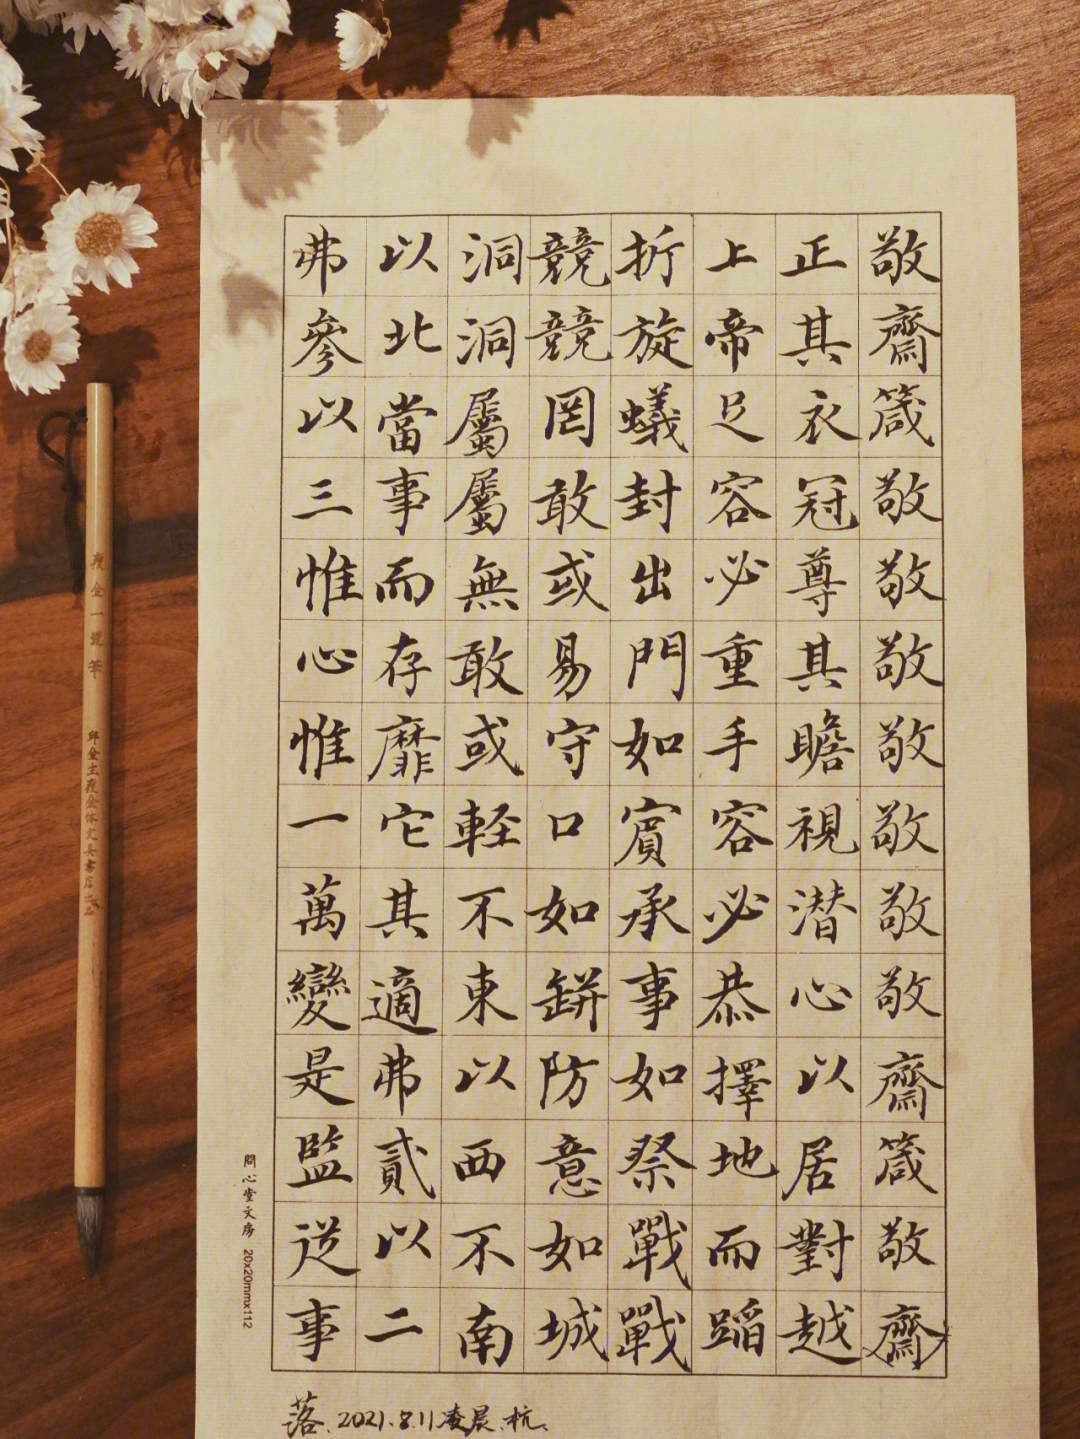 敬齋箴敬敬敬敬敬敬敬齋箴敬齋
正其衣冠尊其瞻視潜心以居對越
上帝足容必重手容必恭擇地而蹈
折旋蟻封出門如賓承事如祭戰戰
競競罔敢或易守口如缾防意如城
洞洞屬屬無敢或軽不東以西不南
以北當事而存靡它其適弗貳以二
弗參以三惟心惟一萬變是監從事
落.2021.8.11凌晨.杭.
問心堂文房 20x20mmx112